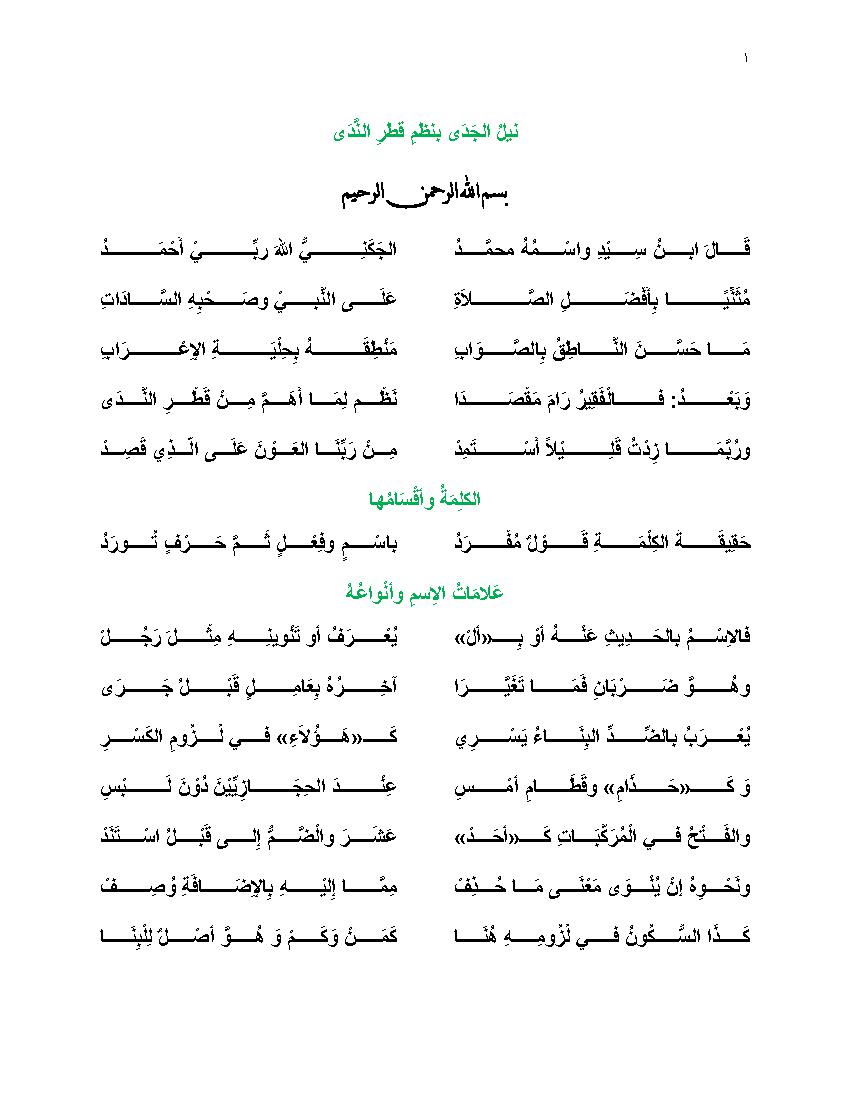 ١
نيلُ الجَدَى بنظمِ قطرِ النَّدَى
بسم الله الرحمن الرحيم
قَالَ ابنُ سِيْدِ واسْمُهُ محمَّدُ الجَكَنِيُّ اللهَ ربِّيْ أَحْمَدُ
مُثَنِّيًا بِأَفْضَلِ الصَّلاَةِ عَلَى النَّبيْ وصَحْبِهِ السَّادَاتِ
مَا حَسَّنَ النَّاطِقُ بِالصَّوَابِ مَنْطِقَهُ بِحِلْيَةِ الإِعْرَابِ
وَبَعْدُ: فَالْفَقِيرُ رَامَ مَقْصَدَا نَظْم لِمَا أَهَمَّ مِنْ قَطْرِ النَّدَى
ورُبَّمَا زِدْتُ قَلِيْلاً أَسْتَمِدْ مِنْ رَبِّنَا العَوْنَ عَلَى الَّذِي قَصِدْ
الكلِمَةُ وأَقْسَامُها
حَقِيقَةَ الكِلْمَةِ قَوْلٌ مُفْرَدُ باسْمٍ وفِعْلٍ ثُمَّ حَرْفٍ تُورَدُ
عَلامَاتُ الاِسمِ وأنْواعُهُ
فَالاِسْمُ بالحَدِيثِ عَنْهُ أوْ بِـ«ألْ» يُعْرَفُ أو تَنْوينِهِ مِثْلَ رَجُلْ
وهُوَّ ضَرْبَانِ فَمَا تَغَيَّرَا آخِرُهُ بِعَامِلٍ قَبْلُ جَرَى
يُعْرَبُ بالضِّدِّ البِنَاءُ يَسْرِي كَـ«هَؤُلاَءِ» في لُزُومِ الكَسْرِ
وَ كَـ«حَذَامِ» وقَطَامِ أمْسِ عِنْدَ الحِجَازِيِّيْنَ دُوْنَ لَبْسِ
والفَتْحُ في الْمُرَكَّبَاتِ كَـ«أحَدْ» عَشَرَ والْضَّمُّ إِلى قَبْلُ اسْتَنَدْ
ونَحْوِهُ إنْ يُنْوَى مَعْنَى مَا حُذِفْ مِمَّا إِلَيْهِ بِالإضَافَةِ وُصِفْ
كَذَا السُّكُونُ في لُزُومِهِ هُنَا كَمَنْ وَكَمْ وَ هُوَّ أصْلٌ لِلْبِنَا